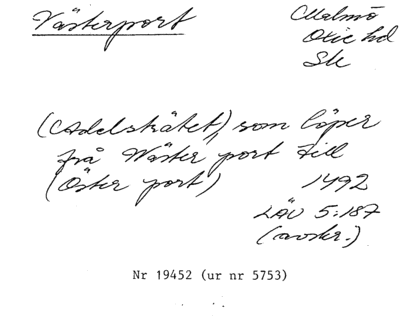 Västerport
Malmö
Oxie hd
Sk
(Adelsträtet,) som löper
från Wäster port till
(Öster port)
1492
LÄU 5:187
(avskr.)
Nr 19452 (ur nr 5753)